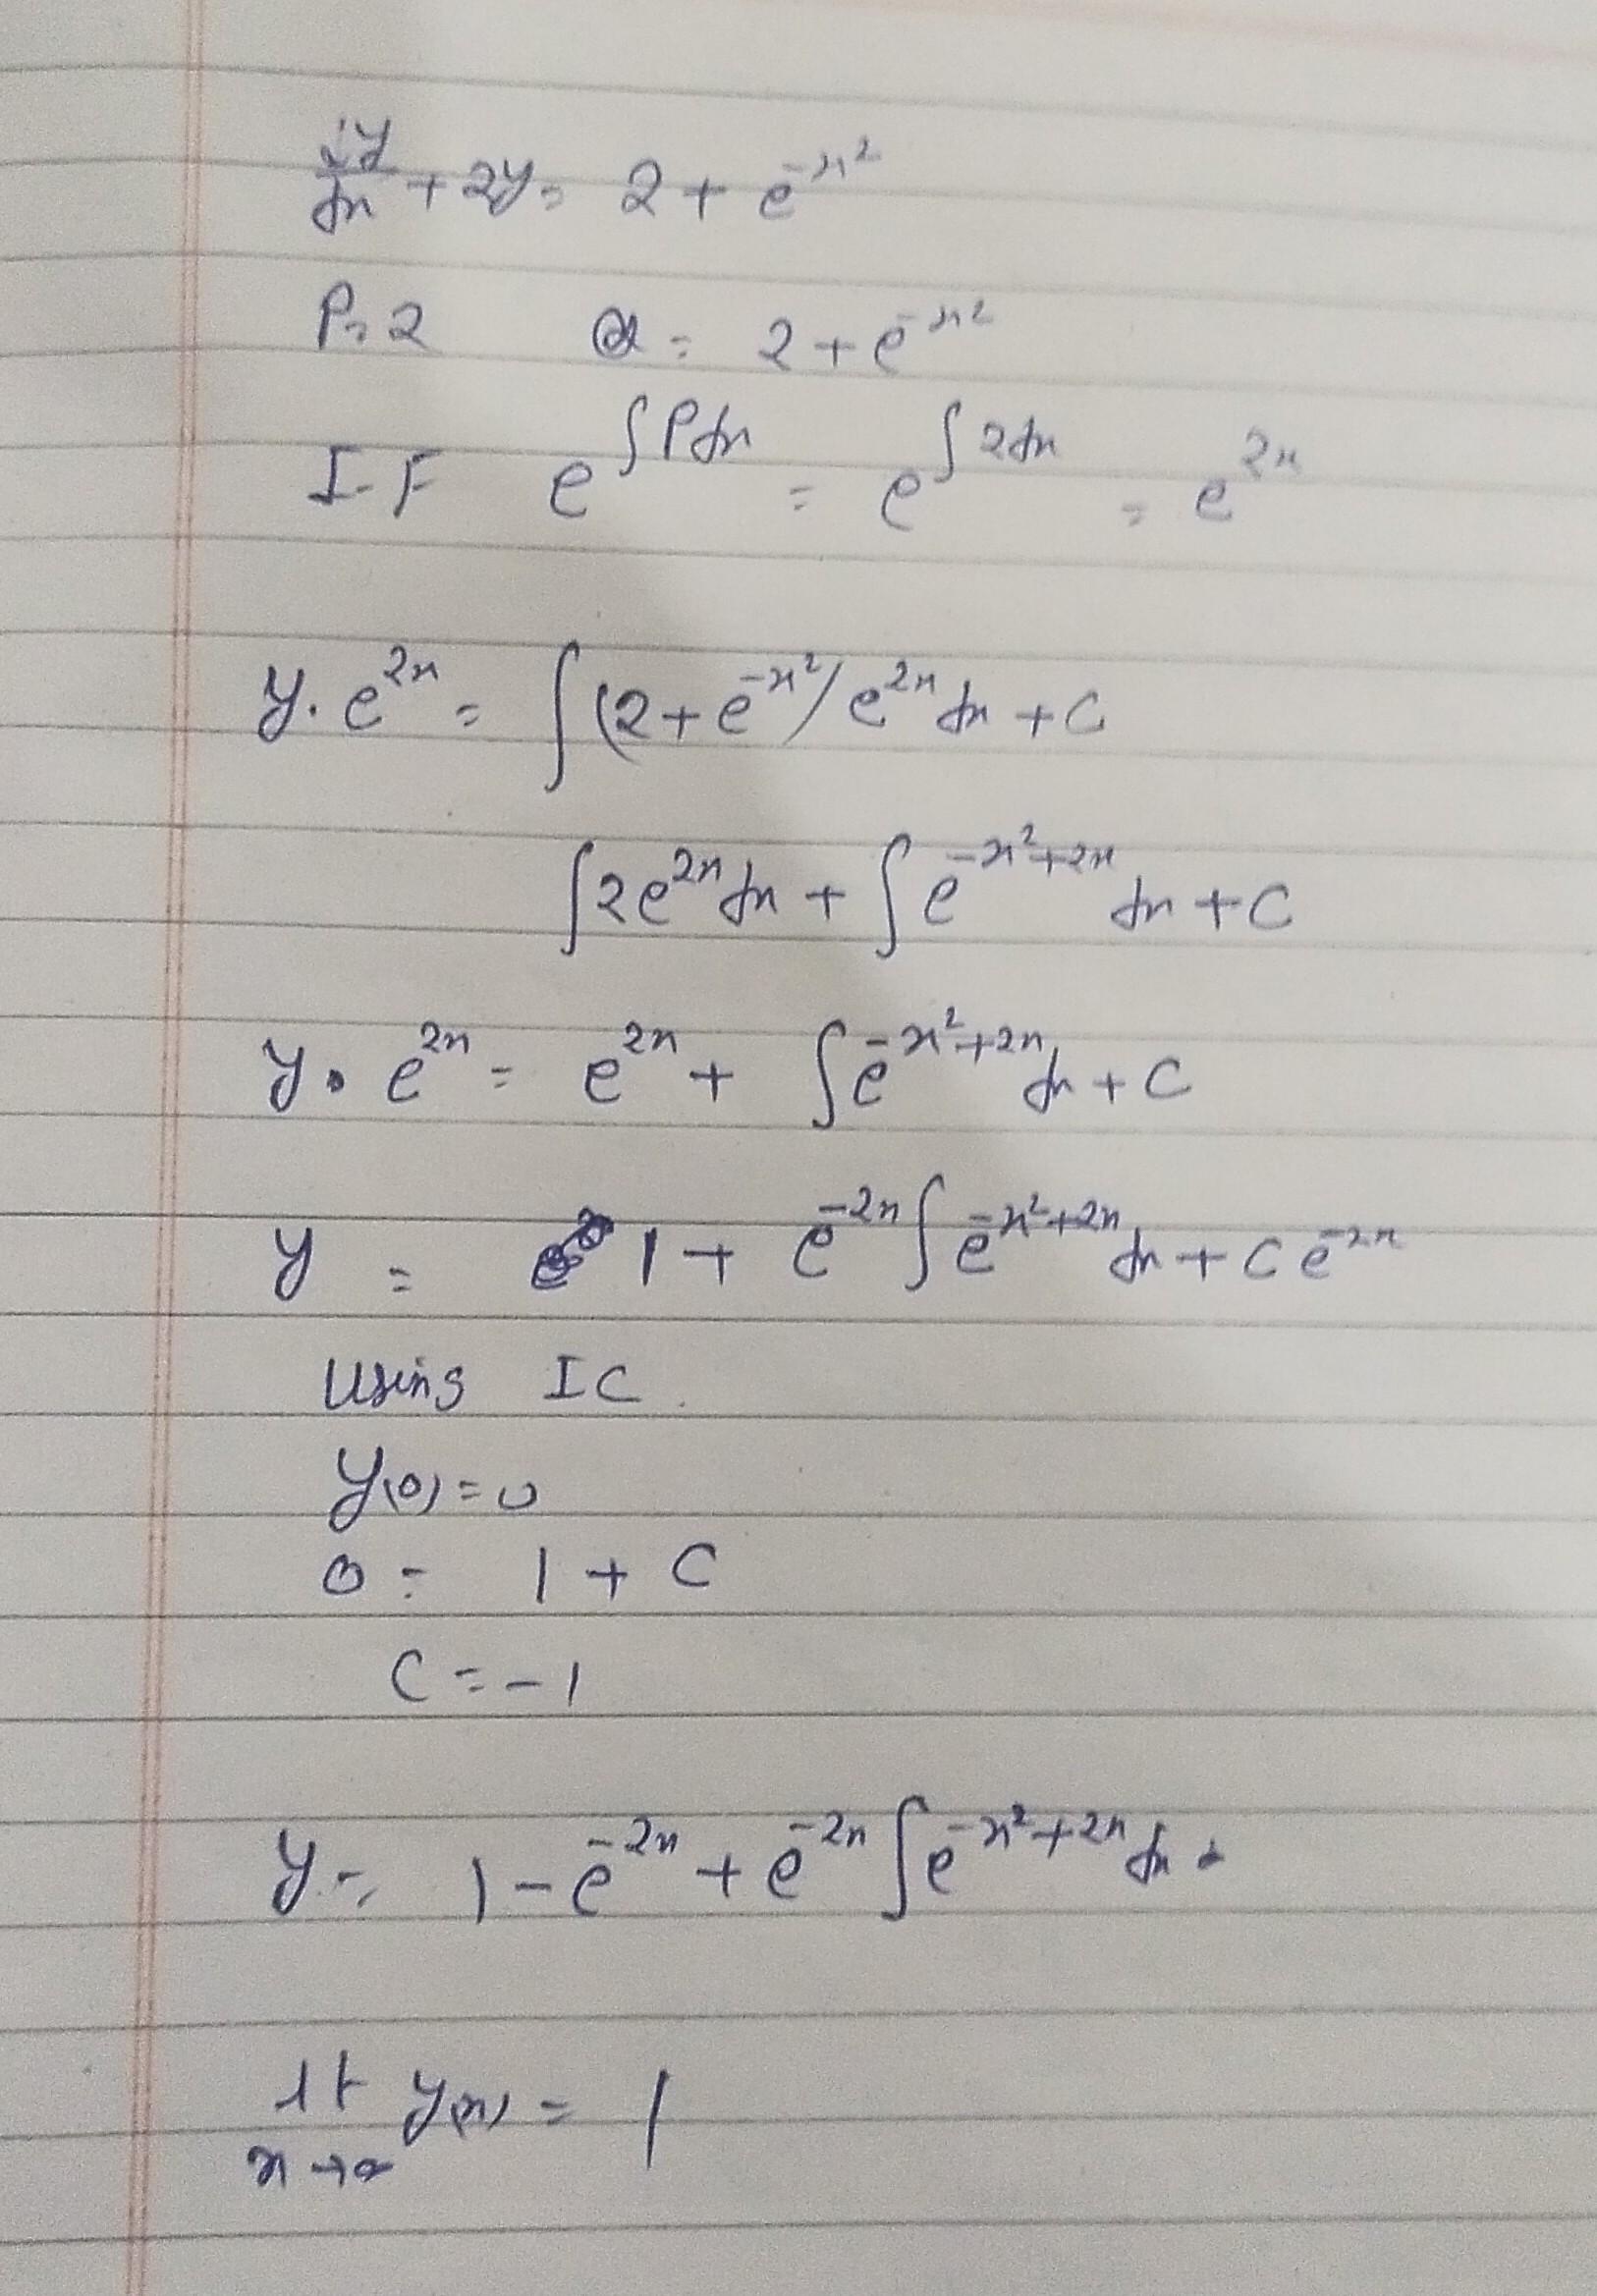 dy/dx + 2y = 2 + e^{-x^2}
P = 2 Q = 2 + e^{-x^2}
I.F e^{∫Pdx} = e^{∫2dx} = e^{2x}
y. e^{2x} = ∫(2 + e^{-x^2}) e^{2x} dx + C
∫2e^{2x}dx + ∫e^{-x^2+2x} dx + C
y. e^{2x} = e^{2x} + ∫e^{-x^2+2x} dx + C
y = 1 + e^{-2x} ∫e^{-x^2+2x} dx + C e^{-2x}
Using IC.
y(0) = 0
0 = 1 + C
C = -1
y = 1 - e^{-2x} + e^{-2x} ∫e^{-x^2+2x} dx.
lt y(x) = 1
x→∞